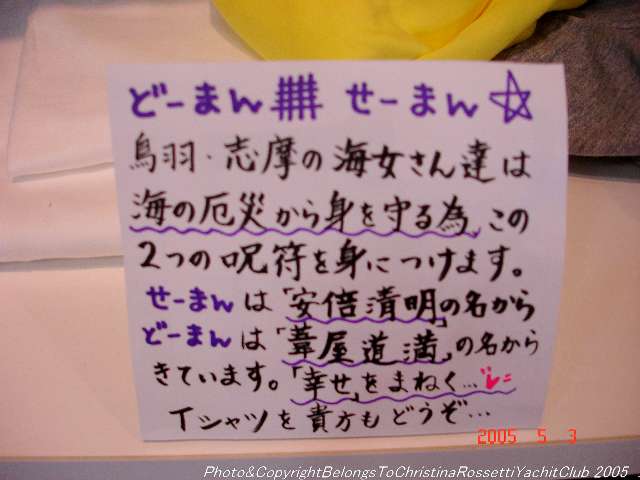 どーまん せーまん ☆
鳥羽・志摩の海女さん達は
海の厄災から身を守る為、この
2つの呪符を身につけます。
せーまんは「安倍清明」の名から
どーまんは「葦屋道満」の名から
きています。「幸せ」をまねく…
Tシャツを貴方もどうぞ…
2005 5 3
Photo&CopyrightBelongsToChristinaRossettiYachitClub 2005